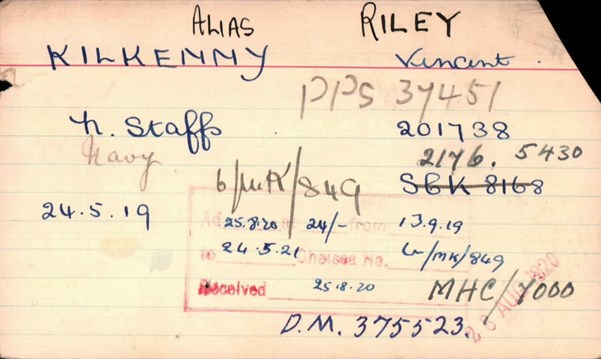 ALIAS RILEY
KILKENNY Vincent.
PPS 37451
N. Staffs 201738
Navy 2176. 5430
6/MK/849 SGK 8168
24.5.19 25.8.20 24/- from 13.9.19
to 24.5.21 Chelsea No. 6/MK/849
Received 25.8.20 MHC/7000
D.M. 375523.